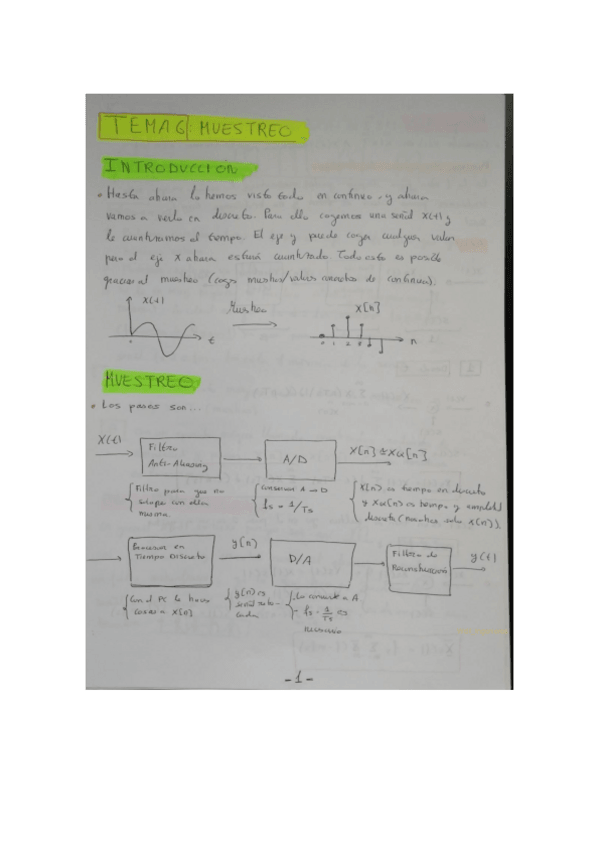 TEMA 6: MUESTREO
INTRODUCCIÓN
• Hasta ahora lo hemos visto todo en continuo, y ahora
vamos a verlo en discreto. Para ello cogemos una señal x(t) y
le cuantizamos el tiempo. El eje y puede coger cualquier valor
pero el eje x ahora estará cuantizado. Todo esto es posible
gracias al muestreo (coger muestras/valores concretos de continuo).
x(t)
Muestreo
x[n]
0
t
0 1 2 3
n
MUESTREO
• Los pasos son...
x(t)
Filtro
Anti-Aliasing
A/D
x[n]
Filtro para que no
solape con ella
misma.
conversor A → D
fs = 1/Ts
x[n] es tiempo en discreto
es tiempo y amplitud
discreta (nosotros solo x[n]).
Procesador en
Tiempo Discreto
y[n]
D/A
Filtro de
Reconstrucción
y(t)
Con el PC le haces
cosas a x[n]
y[n] es
señal
Lo convierte a A
fs = 1/Ts es
necesario
- 1 -